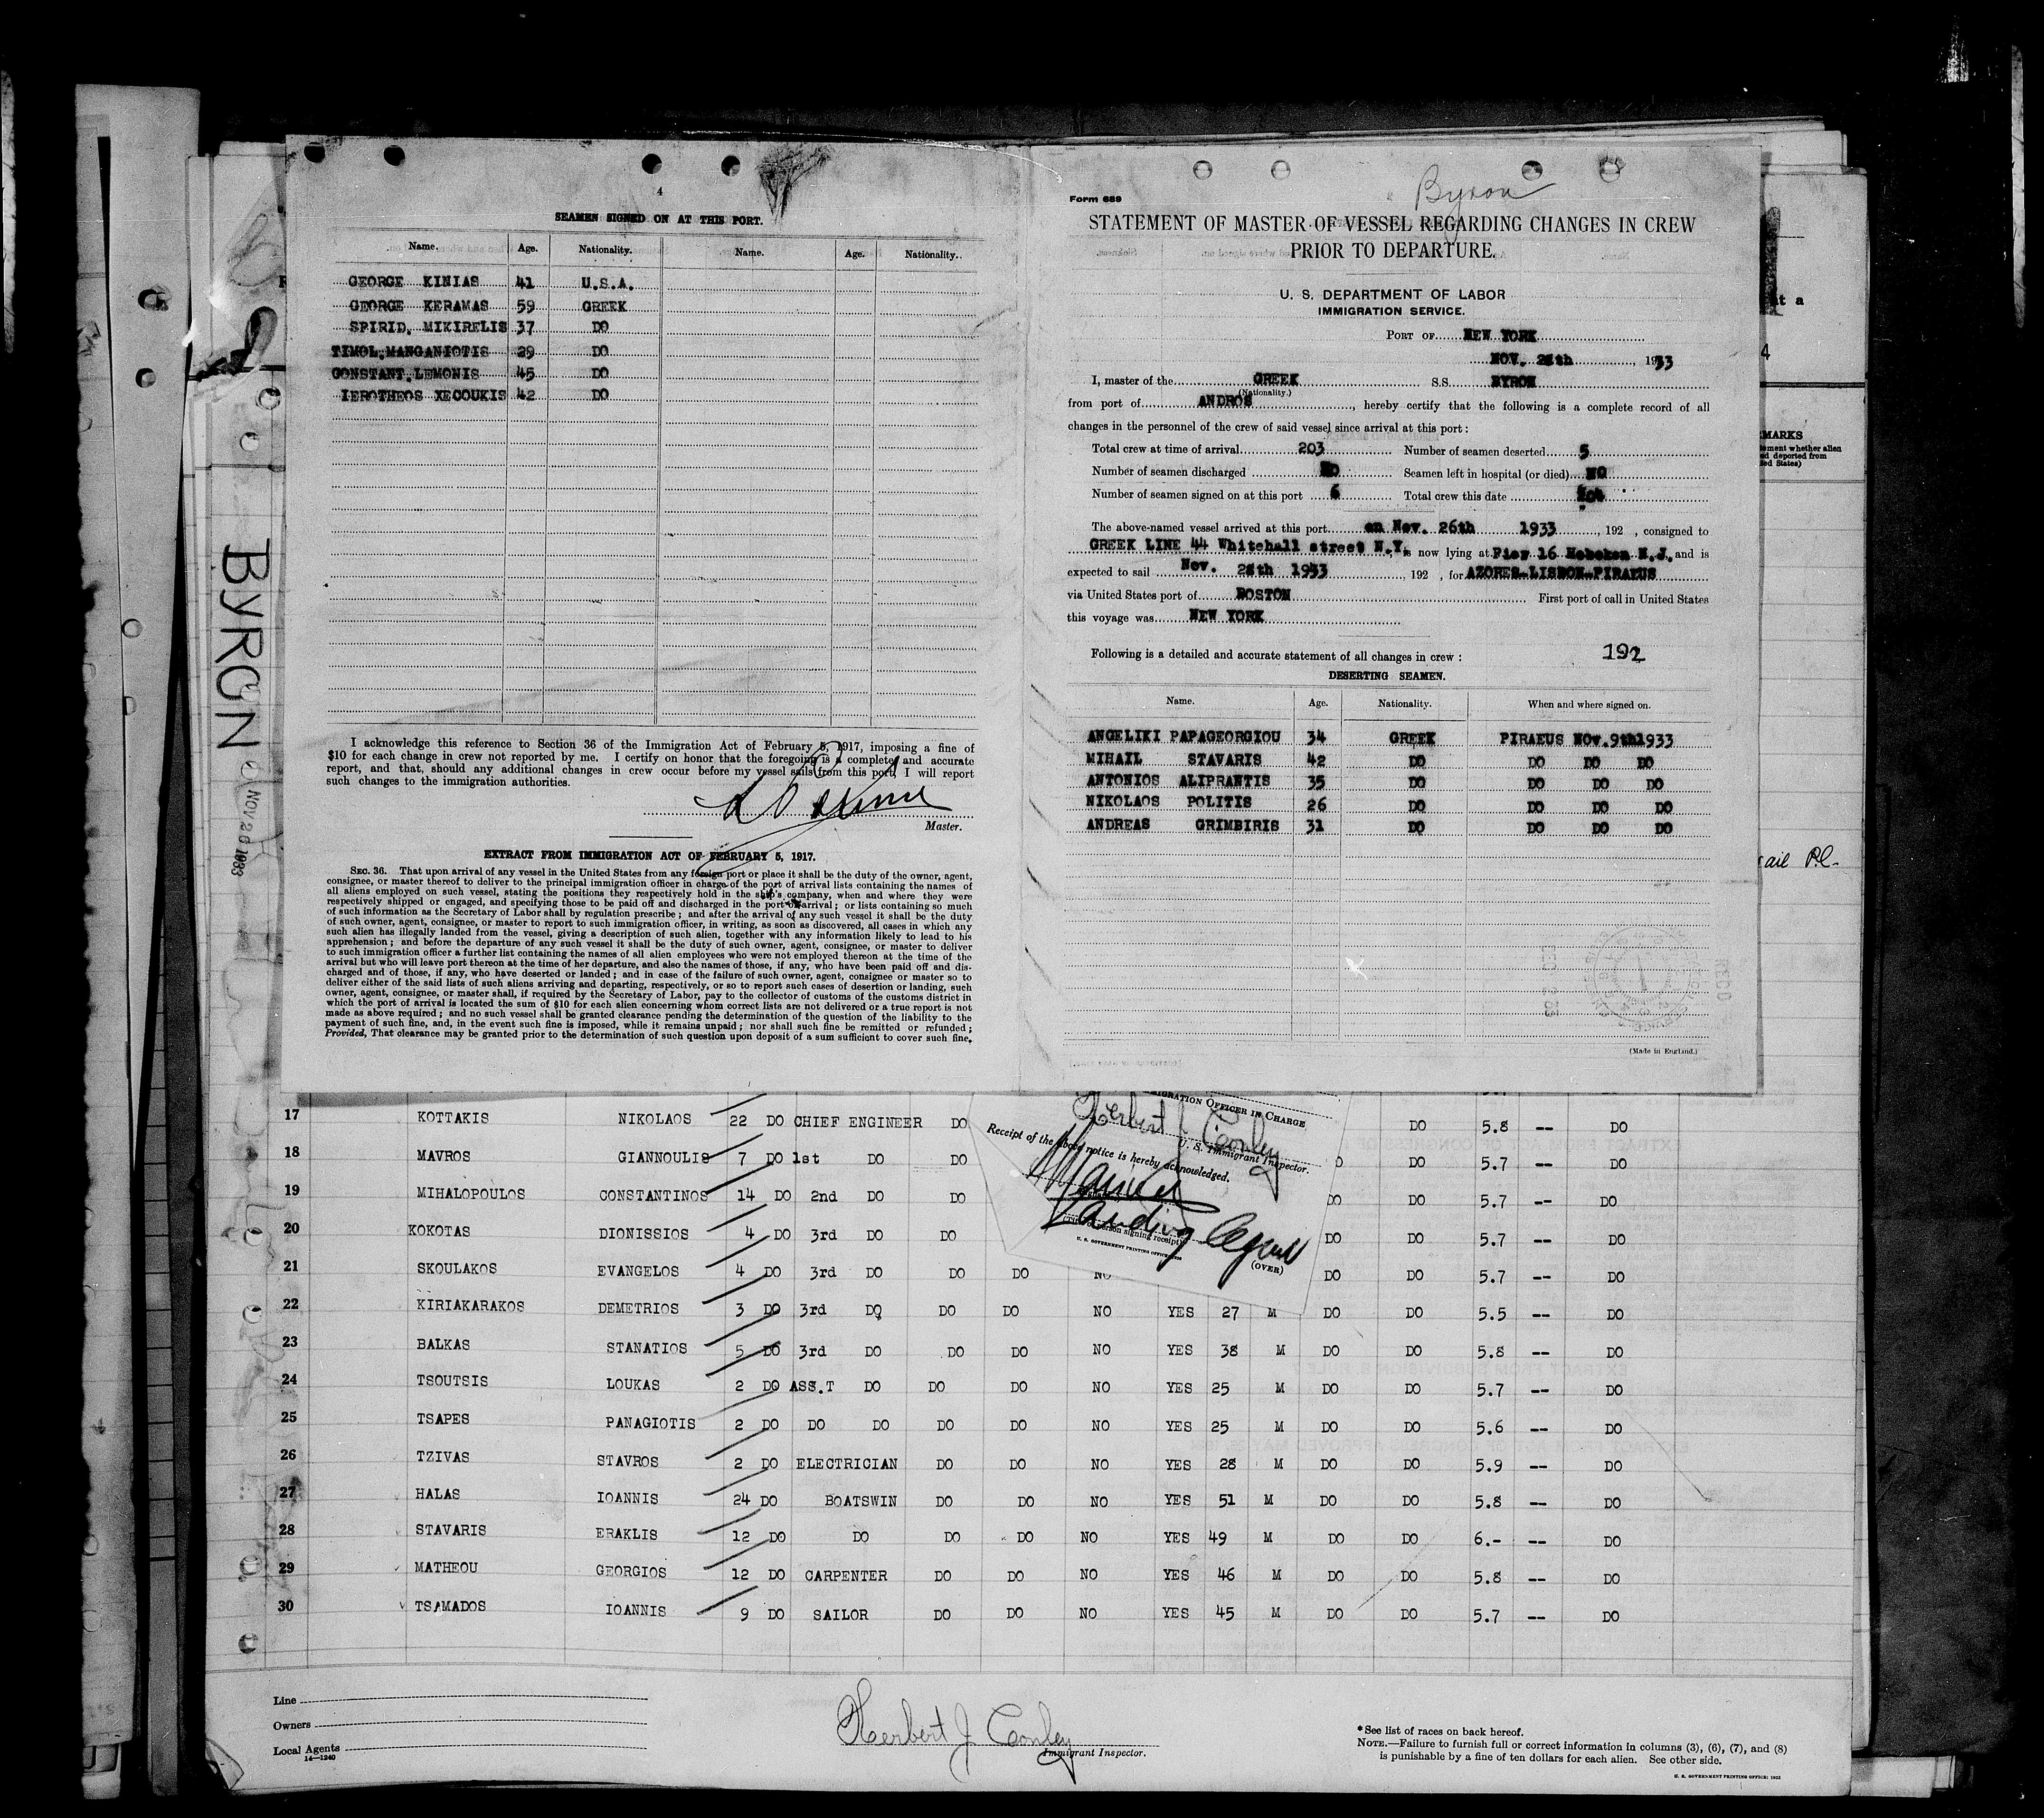 4
SEAMEN SIGNED ON AT THIS PORT.
Name. Age. Nationality. Name. Age. Nationality.
GEORGE KINIAS 41 U.S.A.
GEORGE KERAMAS 59 GREEK
SPIRID. MIKIRELIS 37 DO
TIMOL.MANGANIOTIS 29 DO
CONSTANT.LEMONIS 45 DO
IEROTHEOS XECOUKIS 42 DO
I acknowledge this reference to Section 36 of the Immigration Act of February 5, 1917, imposing a fine of
$10 for each change in crew not reported by me. I certify on honor that the foregoing is a complete and accurate
report, and that, should any additional changes in crew occur before my vessel sails from this port, I will report
such changes to the immigration authorities.
Master.
EXTRACT FROM IMMIGRATION ACT OF FEBRUARY 5, 1917.
SEC. 36. That upon arrival of any vessel in the United States from any foreign port or place it shall be the duty of the owner, agent,
consignee, or master thereof to deliver to the principal immigration officer in charge of the port of arrival lists containing the names of
all aliens employed on such vessel, stating the positions they respectively hold in the ship's company, when and where they were
respectively shipped or engaged, and specifying those to be paid off and discharged in the port of arrival; or lists containing so much
of such information as the Secretary of Labor shall by regulation prescribe; and after the arrival of any such vessel it shall be the duty
of such owner, agent, consignee, or master to report to such immigration officer, in writing, as soon as discovered, all cases in which any
such alien has illegally landed from the vessel, giving a description of such alien, together with any information likely to lead to his
apprehension; and before the departure of any such vessel it shall be the duty of such owner, agent, consignee, or master to deliver
to such immigration officer a further list containing the names of all alien employees who were not employed thereon at the time of the
arrival but who will leave port thereon at the time of her departure, and also the names of those, if any, who have been paid off and dis-
charged and of those, if any, who have deserted or landed; and in case of the failure of such owner, agent, consignee or master so to
deliver either of the said lists of such aliens arriving and departing, respectively, or so to report such cases of desertion or landing, such
owner, agent, consignee, or master shall, if required by the Secretary of Labor, pay to the collector of customs of the customs district in
which the port of arrival is located the sum of $10 for each alien concerning whom correct lists are not delivered or a true report is not
made as above required; and no such vessel shall be granted clearance pending the determination of the question of the liability to the
payment of such fine, and, in the event such fine is imposed, while it remains unpaid; nor shall such fine be remitted or refunded;
Provided, That clearance may be granted prior to the determination of such question upon deposit of a sum sufficient to cover such fine.
Byron
Form 689
STATEMENT OF MASTER OF VESSEL REGARDING CHANGES IN CREW
PRIOR TO DEPARTURE.
U. S. DEPARTMENT OF LABOR
IMMIGRATION SERVICE.
PORT OF NEW YORK
NOV. 28th, 1933
I, master of the GREEK S.S. BYRON
(Nationality.)
from port of ANDROS, hereby certify that the following is a complete record of all
changes in the personnel of the crew of said vessel since arrival at this port:
Total crew at time of arrival 203 Number of seamen deserted 5
Number of seamen discharged NO Seamen left in hospital (or died) NO
Number of seamen signed on at this port 6 Total crew this date 204
The above-named vessel arrived at this port on Nov. 26th 1933, 192 , consigned to
GREEK LINE 44 Whitehall street N.Y. is now lying at Pier 16 Hoboken N.J. and is
expected to sail Nov. 28th 1933, 192 , for AZORES-LISBON-PIRAEUS
via United States port of BOSTON First port of call in United States
this voyage was NEW YORK
Following is a detailed and accurate statement of all changes in crew: 192
DESERTING SEAMEN.
Name. Age. Nationality. When and where signed on.
ANGELIKI PAPAGEORGIOU 34 GREEK PIRAEUS Nov.9th1933
MIHAIL STAVARIS 42 DO DO DO DO
ANTONIOS ALIPRANTIS 35 DO DO DO DO
NIKOLAOS POLITIS 26 DO DO DO DO
ANDREAS GRIMBIRIS 31 DO DO DO DO
(Made in England.)
BYRON
NOV 26 1933
MARKS
ail P.l.
17 KOTTAKIS NIKOLAOS 22 DO CHIEF ENGINEER DO DO 5.8 -- DO
18 MAVROS GIANNOULIS 7 DO 1st DO DO DO 5.7 -- DO
19 MIHALOPOULOS CONSTANTINOS 14 DO 2nd DO DO DO DO 5.7 -- DO
20 KOKOTAS DIONISSIOS 4 DO 3rd DO DO DO DO 5.7 -- DO
21 SKOULAKOS EVANGELOS 4 DO 3rd DO DO DO NO DO DO 5.7 -- DO
22 KIRIAKARAKOS DEMETRIOS 3 DO 3rd DO DO DO NO YES 27 M DO DO 5.5 -- DO
23 BALKAS STANATIOS 5 DO 3rd DO DO DO NO YES 38 M DO DO 5.8 -- DO
24 TSOUTSIS LOUKAS 2 DO ASS.T DO DO DO NO YES 25 M DO DO 5.7 -- DO
25 TSAPES PANAGIOTIS 2 DO DO DO DO DO NO YES 25 M DO DO 5.6 -- DO
26 TZIVAS STAVROS 2 DO ELECTRICIAN DO DO NO YES 28 M DO DO 5.9 -- DO
27 HALAS IOANNIS 24 DO BOATSWIN DO DO NO YES 51 M DO DO 5.8 -- DO
28 STAVARIS ERAKLIS 12 DO DO DO DO NO YES 49 M DO DO 6.- -- DO
29 MATHEOU GEORGIOS 12 DO CARPENTER DO DO NO YES 46 M DO DO 5.8 -- DO
30 TSAMADOS IOANNIS 9 DO SAILOR DO DO NO YES 45 M DO DO 5.7 -- DO
OFFICER IN CHARGE
Herbert J. Conley
U. S. Immigrant Inspector.
Receipt of the above notice is hereby acknowledged.
Landing Agent
(OVER)
Line
Owners
Local Agents
14-1240
Herbert J Conley
Immigrant Inspector.
*See list of races on back hereof.
NOTE.—Failure to furnish full or correct information in columns (3), (6), (7), and (8)
is punishable by a fine of ten dollars for each alien. See other side.
U. S. GOVERNMENT PRINTING OFFICE: 1932